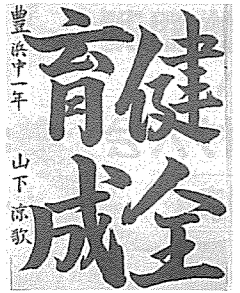 健全
育成
豊浜中一年 山下涼歌